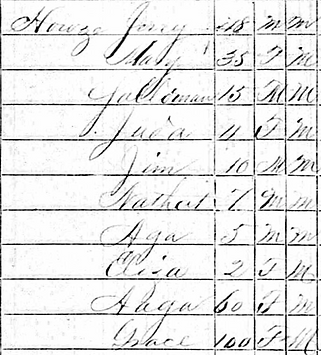 Howze Jerry 48 M M
Mary 35 F M
15 M M
Juda 11 F M
Jim 10 M M
Nathan 7 M M
Aga 5 M M
Eliza 2 F M
Aaga 60 F M
Grace 100 F M